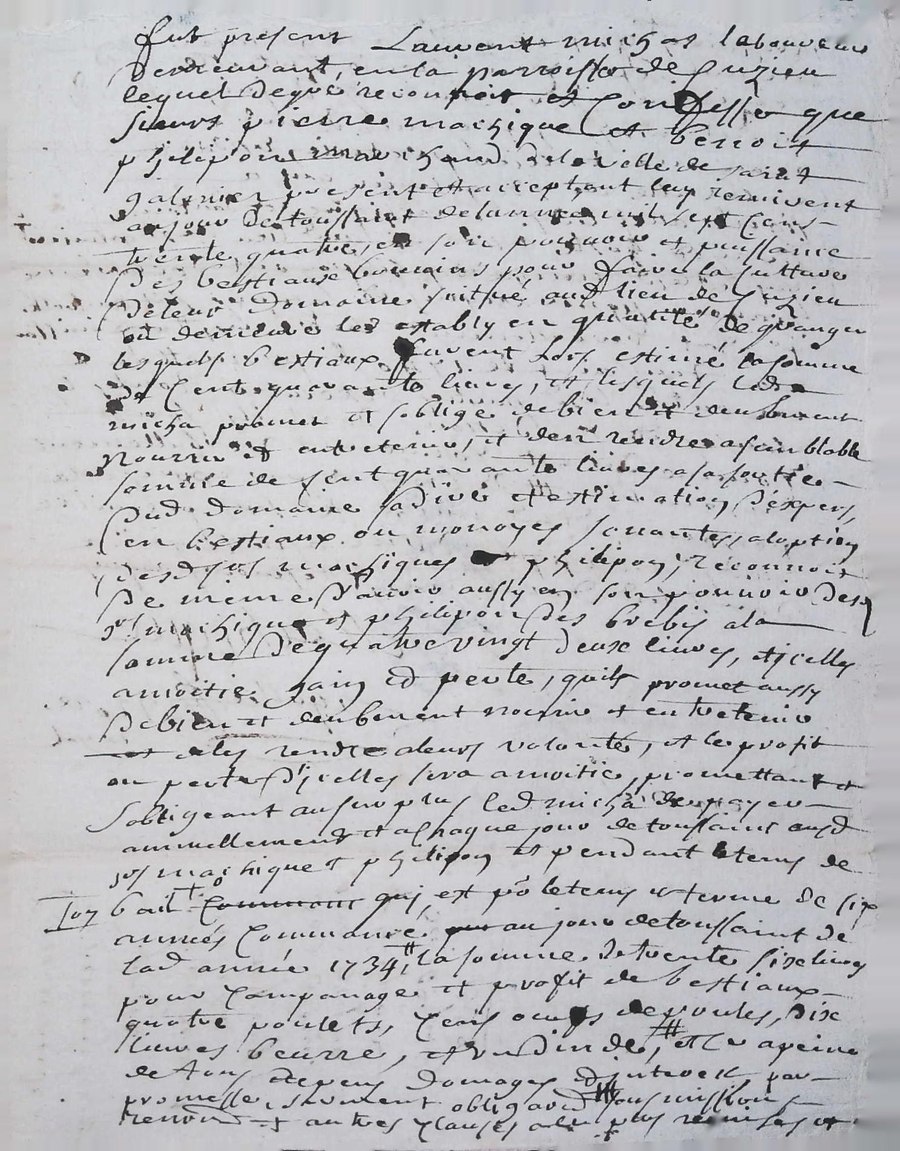 fut present Laurent michas laboureur
demeurant, en la parroisse de Cuzieu
lequel de gré reconnoit et Confesse que
sieurs pierre machique et benoit
philipon marchand de la ville de saint
galmier present et acceptant luy remirent
au jour de toussaint de lannee mil sept Cens
trente quatre, en son pouvoir et puissance
Des bestiaux pour faire la culture
De leur Domaine situé aud lieu de Cuzieu
ou demeure les estably en quantité de granger
lesquels bestiaux furent lors estimé la somme
De Cent quarante livres, et lesquels led
micha promet et soblige de bien et deubement
Nourrir et entretenir, et den rendre a semblable
somme de Cent quarante livres a sa sortie
Dud Domaine a dire et estimation Dexpers,
en bestiaux ou monoyes sonantes, aloption
Desd srs machiques et philipon; reconnoit
De meme Davoir aussy en son pouvoir Desd
srs machique et philipon Des brebis ala
somme De quatre vingt deux livres, et icelles
amoitié gain et perte, quils promet aussy
De bien et deubement nourrir et entretenir
et de les rendre a leurs volonté, et le profit
ou perte D'icelles sera amoitié, promettant et
sobligeant au surplus led micha de payer
annuellement et a chaque jour de toussaint ausd
srs machique et philipon et pendant le tems de
bail qui est po le tems et terme de six
années Commancé au jour de toussaint de
lad année 1734, la somme de trente six livres
pour Campanage et profit de bestiaux
quatre poulets, Cens oeufs de poules, Dix
livres beurre, et un Dinde, et Ce a peine
de tous depens Domages et interest par
promesse, serment obligaon soumissions
renon et autres Clauses